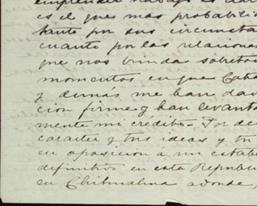 emprender trabajo es dar
es el que mas probabili
tanto por sus circunsta
cuanto por las relacione
que nos brinda sobreto
momentos en que
y demas me han da
cion firme y han levant
mente mi crédito. Por de
caracter y tus ideas y tu
en oposicion a mi estable
definitivo en esta Republi
en Chihuahua adonde,